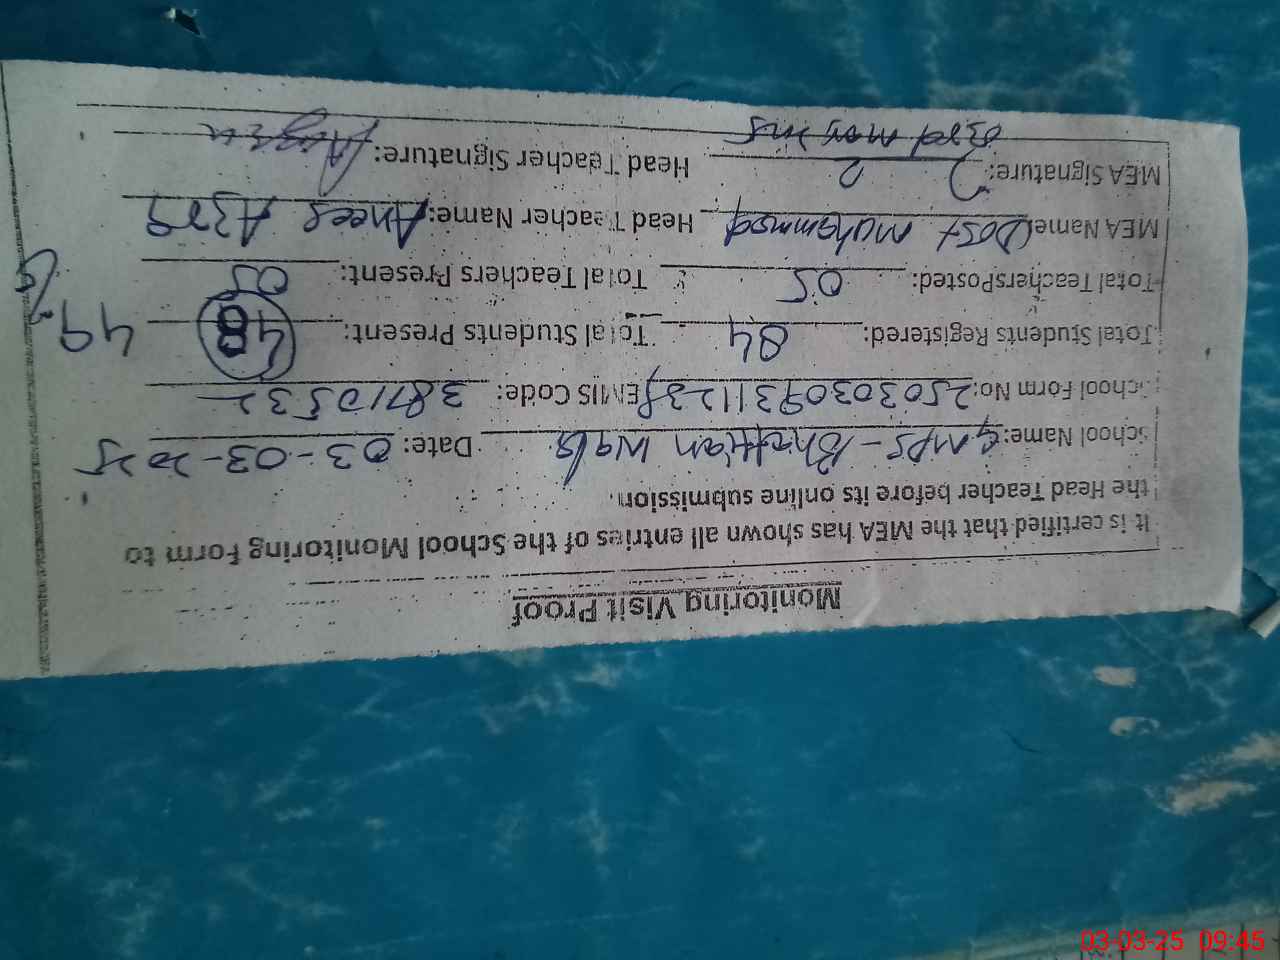 Monitoring Visit Proof
It is certified that the MEA has shown all entries of the School Monitoring Form to
the Head Teacher before its online submission.
School Name: GMPS - Bhattian wala Date: 03-03-2025
School Form No: EMIS Code: 38710532
Total Students Registered: 84 Total Students Present: 48 49
Total Teachers Posted: 05 Total Teachers Present: 05
MEA Name: Dost Muhammad Head Teacher Name: Aneel
MEA Signature: Head Teacher Signature:
03-03-25 09:45